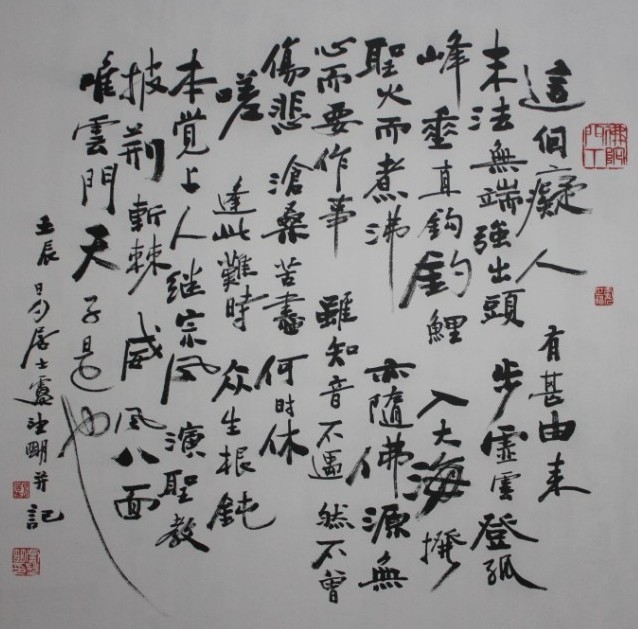 這個癡人 有甚由来
末法無端强出頭 步虛雲登孤
峰 垂直鈎釣鯉 入大海撥
聖火而煮沸 亦隨佛源無
心而要作事 雖知音不遇 然不曾
傷悲 滄桑苦盡 何时休
嗟 逢此難時 众生根鈍
本覚上人继宗风 演聖教
披荆斬棘 威风八面
唯雲門天子是也
壬辰 易居士 明并記